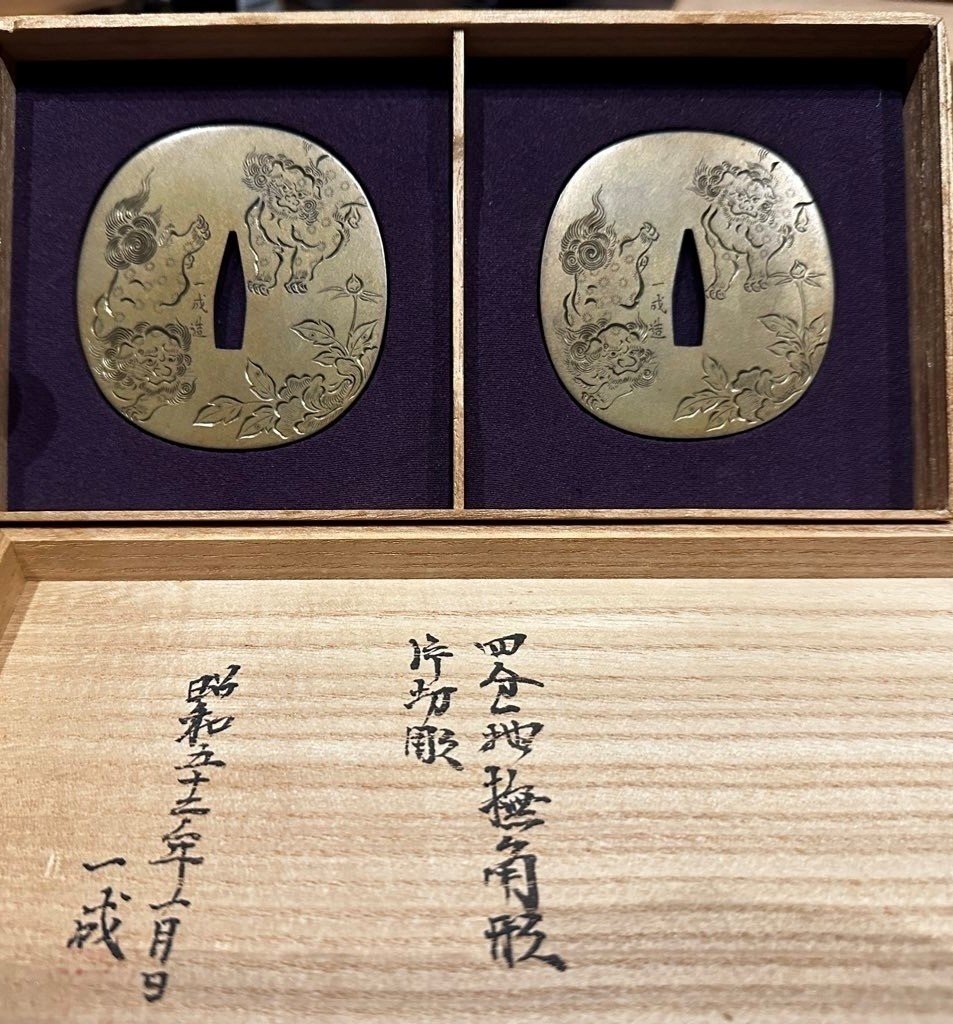 一成造
一成造
四分一地撫角形
片切彫
昭和五十二年 月日
一成